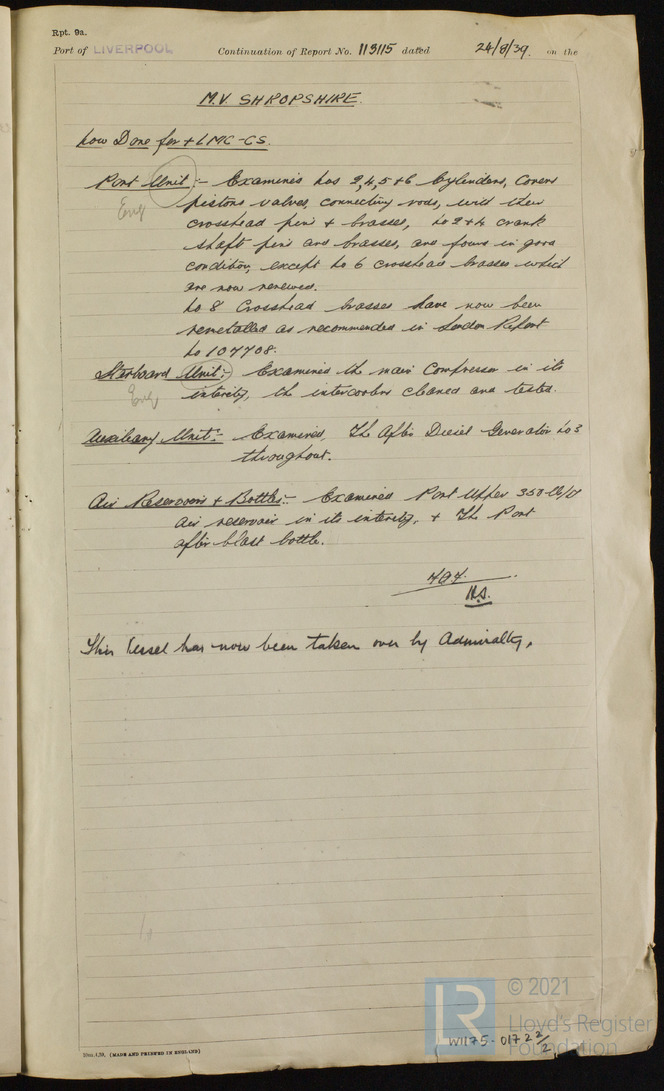 Rpt. 9a.
Port of LIVERPOOL Continuation of Report No. 113115 dated 24/8/39. on the
M.V. SHROPSHIRE.
Now Done for +LMC-CS.
Port Unit:- Examined Nos 2,4,5+6 Cylinders, Covers
Eng
pistons valves, connecting rods, with their
crosshead pins + brasses, No 2+4 crank
shaft pins and brasses, and found in good
condition, except No 6 crosshead brasses which
are now renewed.
No 8 Crosshead brasses have now been
remetalled as recommended in London Report
No 107708.
Starboard Unit:- Examined the main Compressor in its
Eng
intirity, the intercoolers cleaned and tested.
Auxiliary Unit:- Examined, The After Diesel Generator No 3
throughout.
Air Reservoirs + Bottles:- Examined Port Upper 350 lb/□"
air reservoir in its intirity, + The Port
after blast bottle.
H.S.
This Vessel has now been taken over by Admiralty.
(MADE AND PRINTED IN ENGLAND)
LR
© 2021
Lloyd's Register
Foundation
W1175-0172 2/2